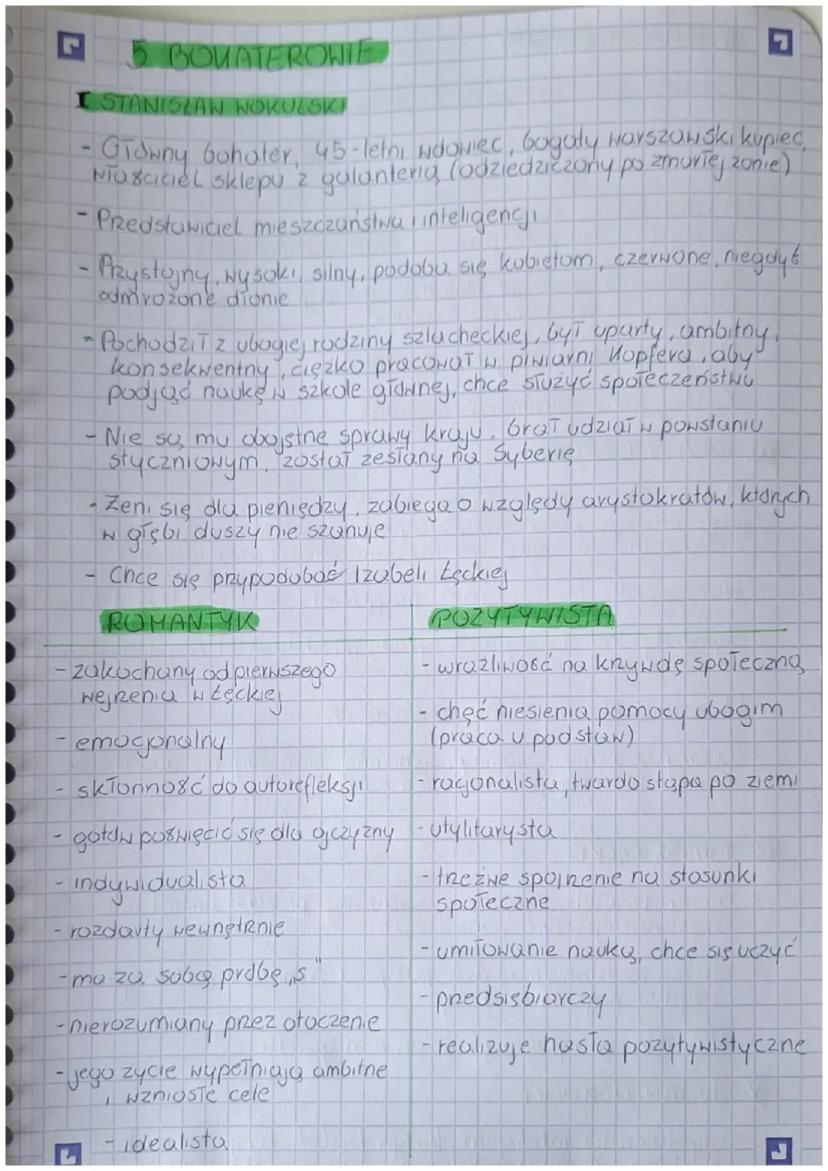 5 BOHATEROWIE
I STANISŁAW WOKULSKI
- Główny bohater, 45-letni wdowiec, bogaty warszawski kupiec,
właściciel sklepu z galanterią (odziedziczony po zmarłej żonie)
- Przedstawiciel mieszczaństwa i inteligencji
- Przystojny, wysoki, silny, podoba się kobietom, czerwone, niegdyś
odmrożone dłonie
- Pochodził z ubogiej rodziny szlacheckiej, był uparty, ambitny,
konsekwentny, ciężko pracował w piwiarni Hopfera, aby
podjąć naukę w szkole głównej, chce służyć społeczeństwu
- Nie są mu obojętne sprawy kraju, brał udział w powstaniu
styczniowym, został zesłany na Syberię
- Żeni się dla pieniędzy, zabiega o względy arystokratów, których
w głębi duszy nie szanuje
- Chce się przypodobać Izabeli Łęckiej
ROMANTYK
- zakochany od pierwszego
wejrzenia w Łęckiej
- emocjonalny
- skłonność do autorefleksji
- gotów poświęcić się dla ojczyzny
- indywidualista
- rozdarty wewnętrznie
- ma za sobą próbę „s"
- nierozumiany przez otoczenie
- jego życie wypełniają ambitne
i wzniosłe cele
- idealista
POZYTYWISTA
- wrażliwość na krzywdę społeczną
- chęć niesienia pomocy ubogim
(praca u podstaw)
- racjonalista, twardo stąpa po ziemi
- utylitarysta
- trzeźwe spojrzenie na stosunki
społeczne
- umiłowanie nauki, chce się uczyć
- przedsiębiorczy
- realizuje hasła pozytywistyczne